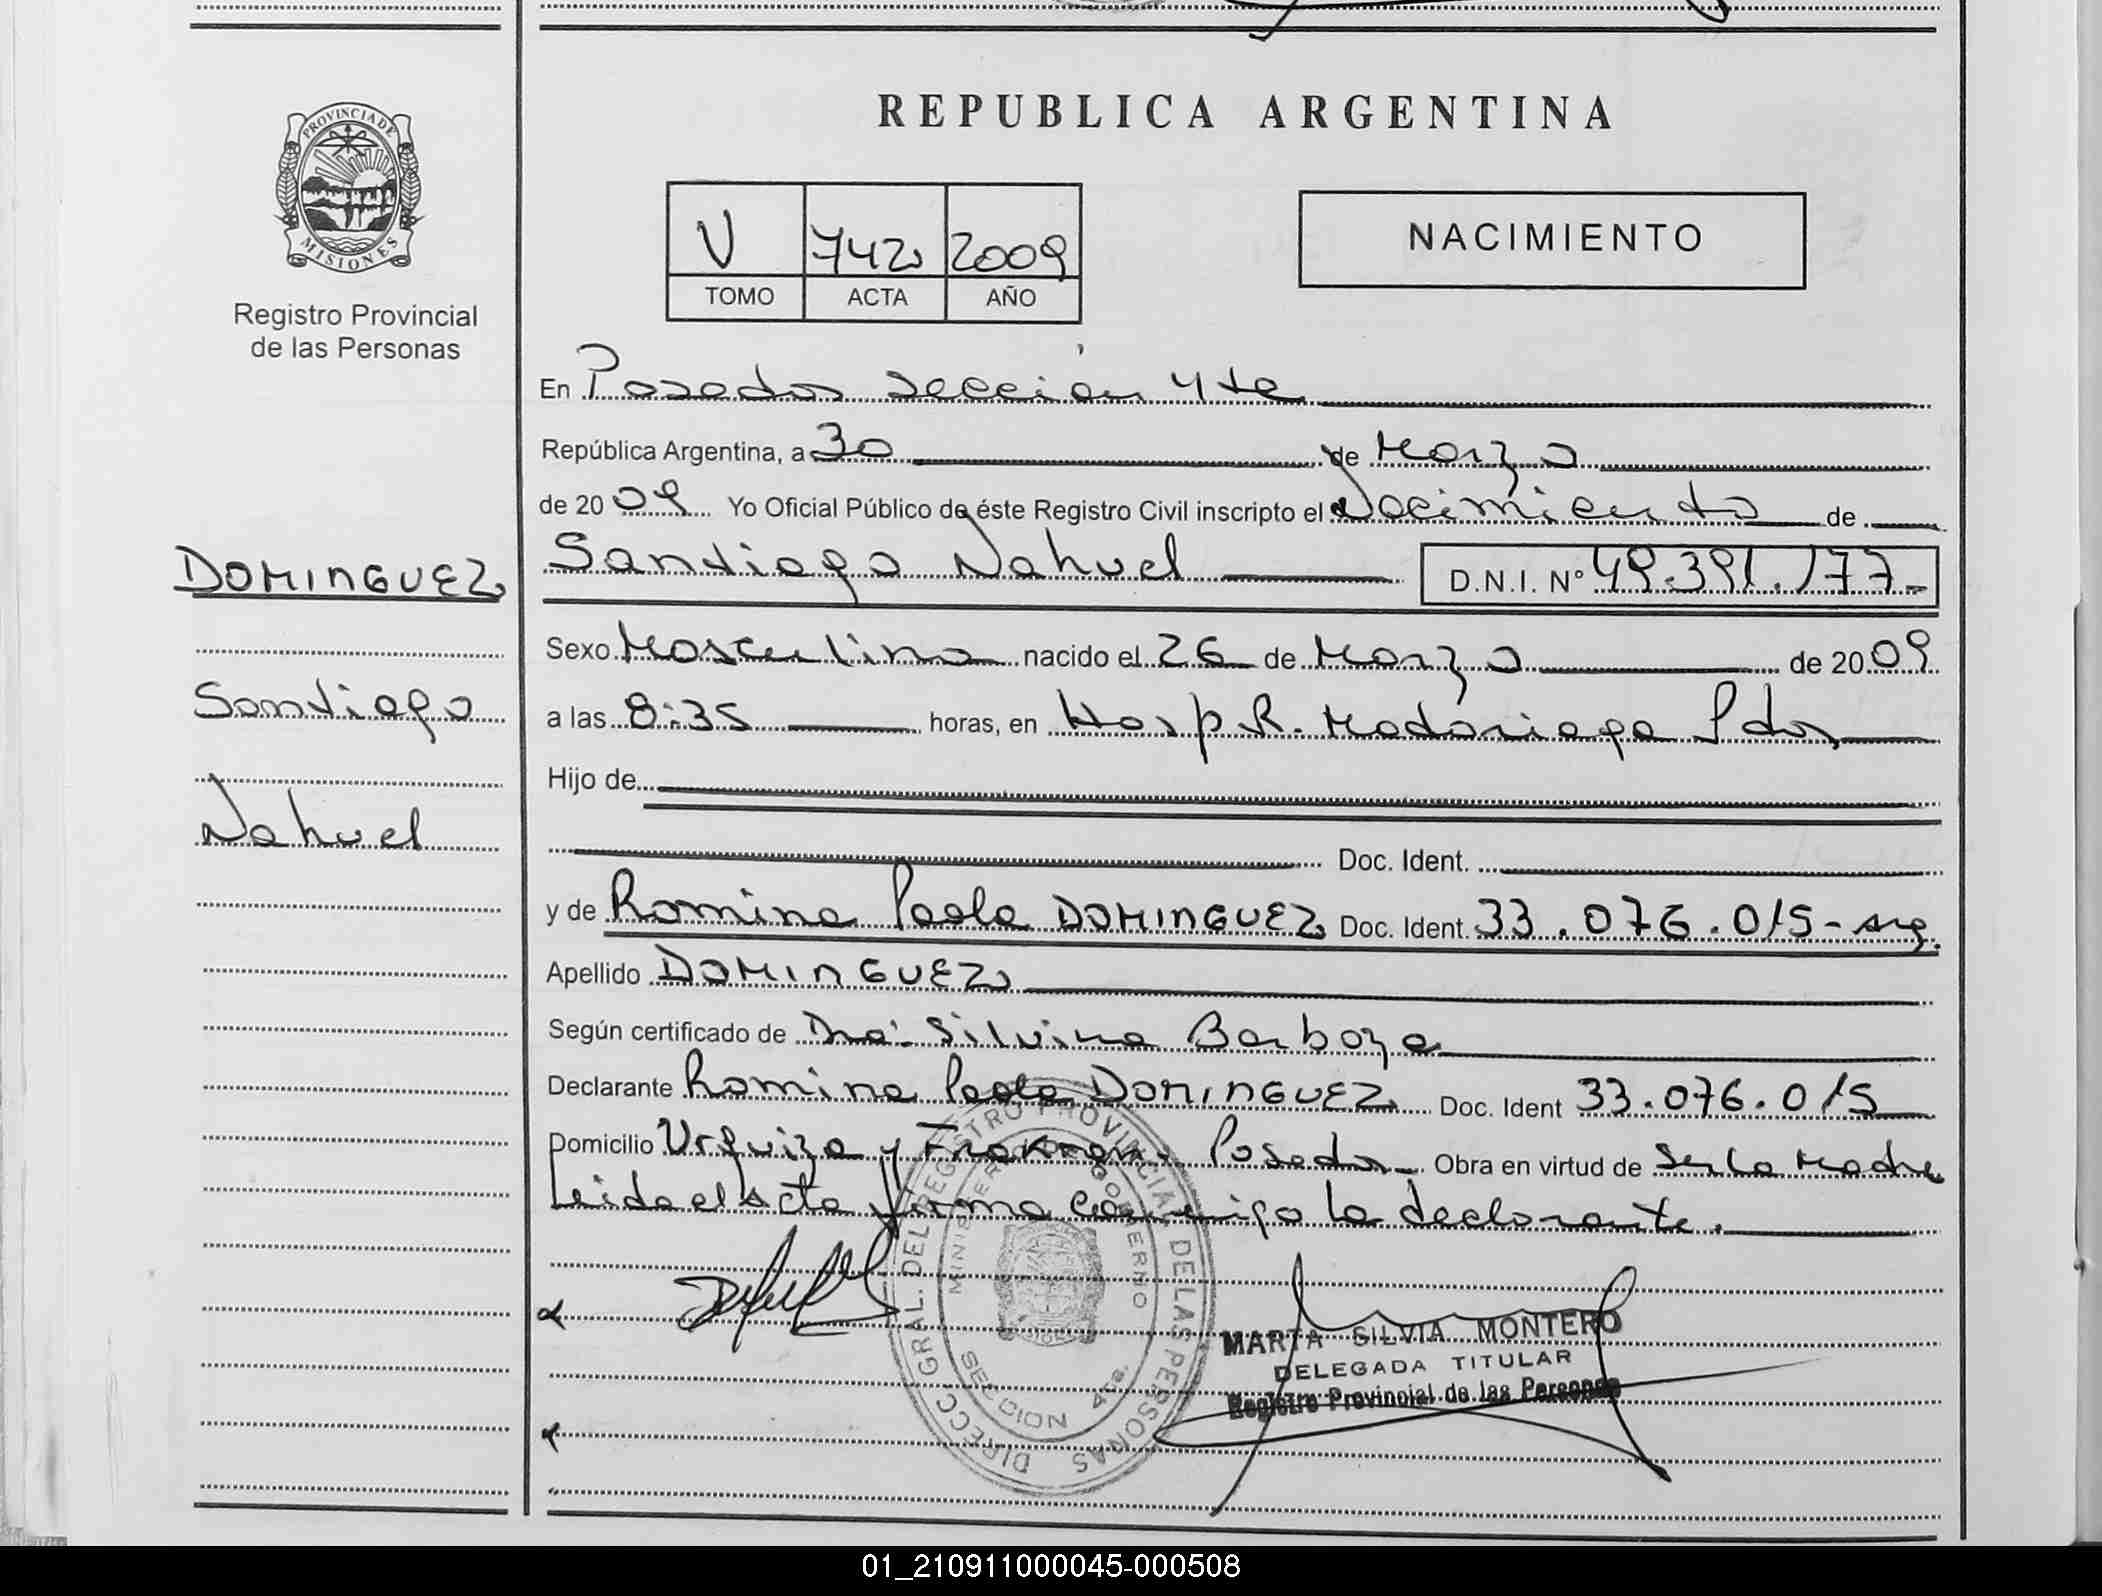 REPUBLICA ARGENTINA
PROVINCIA DE
MISIONES
Registro Provincial
de las Personas
V 742 2009
TOMO ACTA AÑO
NACIMIENTO
En Posadas sección 4ta
República Argentina, a 30 de Marzo
de 2009 Yo Oficial Público de éste Registro Civil inscripto el Nacimiento de
DOMINGUEZ
Santiago
Nahuel
Santiago Nahuel D.N.I. N° 49.391.177-
Sexo Masculino nacido el 26 de Marzo de 2009
a las 8:35 horas, en Hosp R. Madariaga Pdas
Hijo de
Doc. Ident.
y de Romina Paola DOMINGUEZ Doc. Ident. 33.076.015- arg.
Apellido DOMINGUEZ
Según certificado de Dra: Silvina Barboza
Declarante Romina Paola DOMINGUEZ Doc. Ident 33.076.015
Domicilio Urquiza y Posadas Obra en virtud de ser la Madre
Leida el Acta firma conmigo la declarante.
DIRECC. GRAL. DEL REGISTRO PROVINCIAL DE LAS PERSONAS
MINISTERIO GOBIERNO
SECCION 4ta.
MARTA SILVIA MONTERO
DELEGADA TITULAR
Registro Provincial de las Personas
01_210911000045-000508